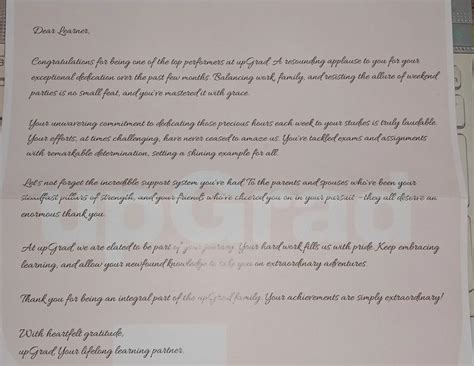 Dear Learner,
Congratulations for being one of the top performers at upGrad. A resounding applause to you for your
exceptional dedication over the past few months. Balancing work, family, and resisting the allure of weekend
parties is no small feat, and you've mastered it with grace.
Your unwavering commitment to dedicating those precious hours each week to your studies is truly laudable.
Your efforts, at times challenging, have never ceased to amaze us. You've tackled exams and assignments
with remarkable determination, setting a shining example for all.
Let's not forget the incredible support system you've had. To the parents and spouses who've been your
steadfast pillars of strength, and your friends who've cheered you on in your pursuit - they all deserve an
enormous thank you.
upGrad
At upGrad, we are elated to be part of your journey. Your hard work fills us with pride. Keep embracing
learning, and allow your newfound knowledge to take you on extraordinary adventures.
Thank you for being an integral part of the upGrad family. Your achievements are simply extraordinary!
With heartfelt gratitude,
upGrad, Your lifelong learning partner.